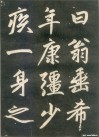 白翁垂希
年康彊少
疾一身之